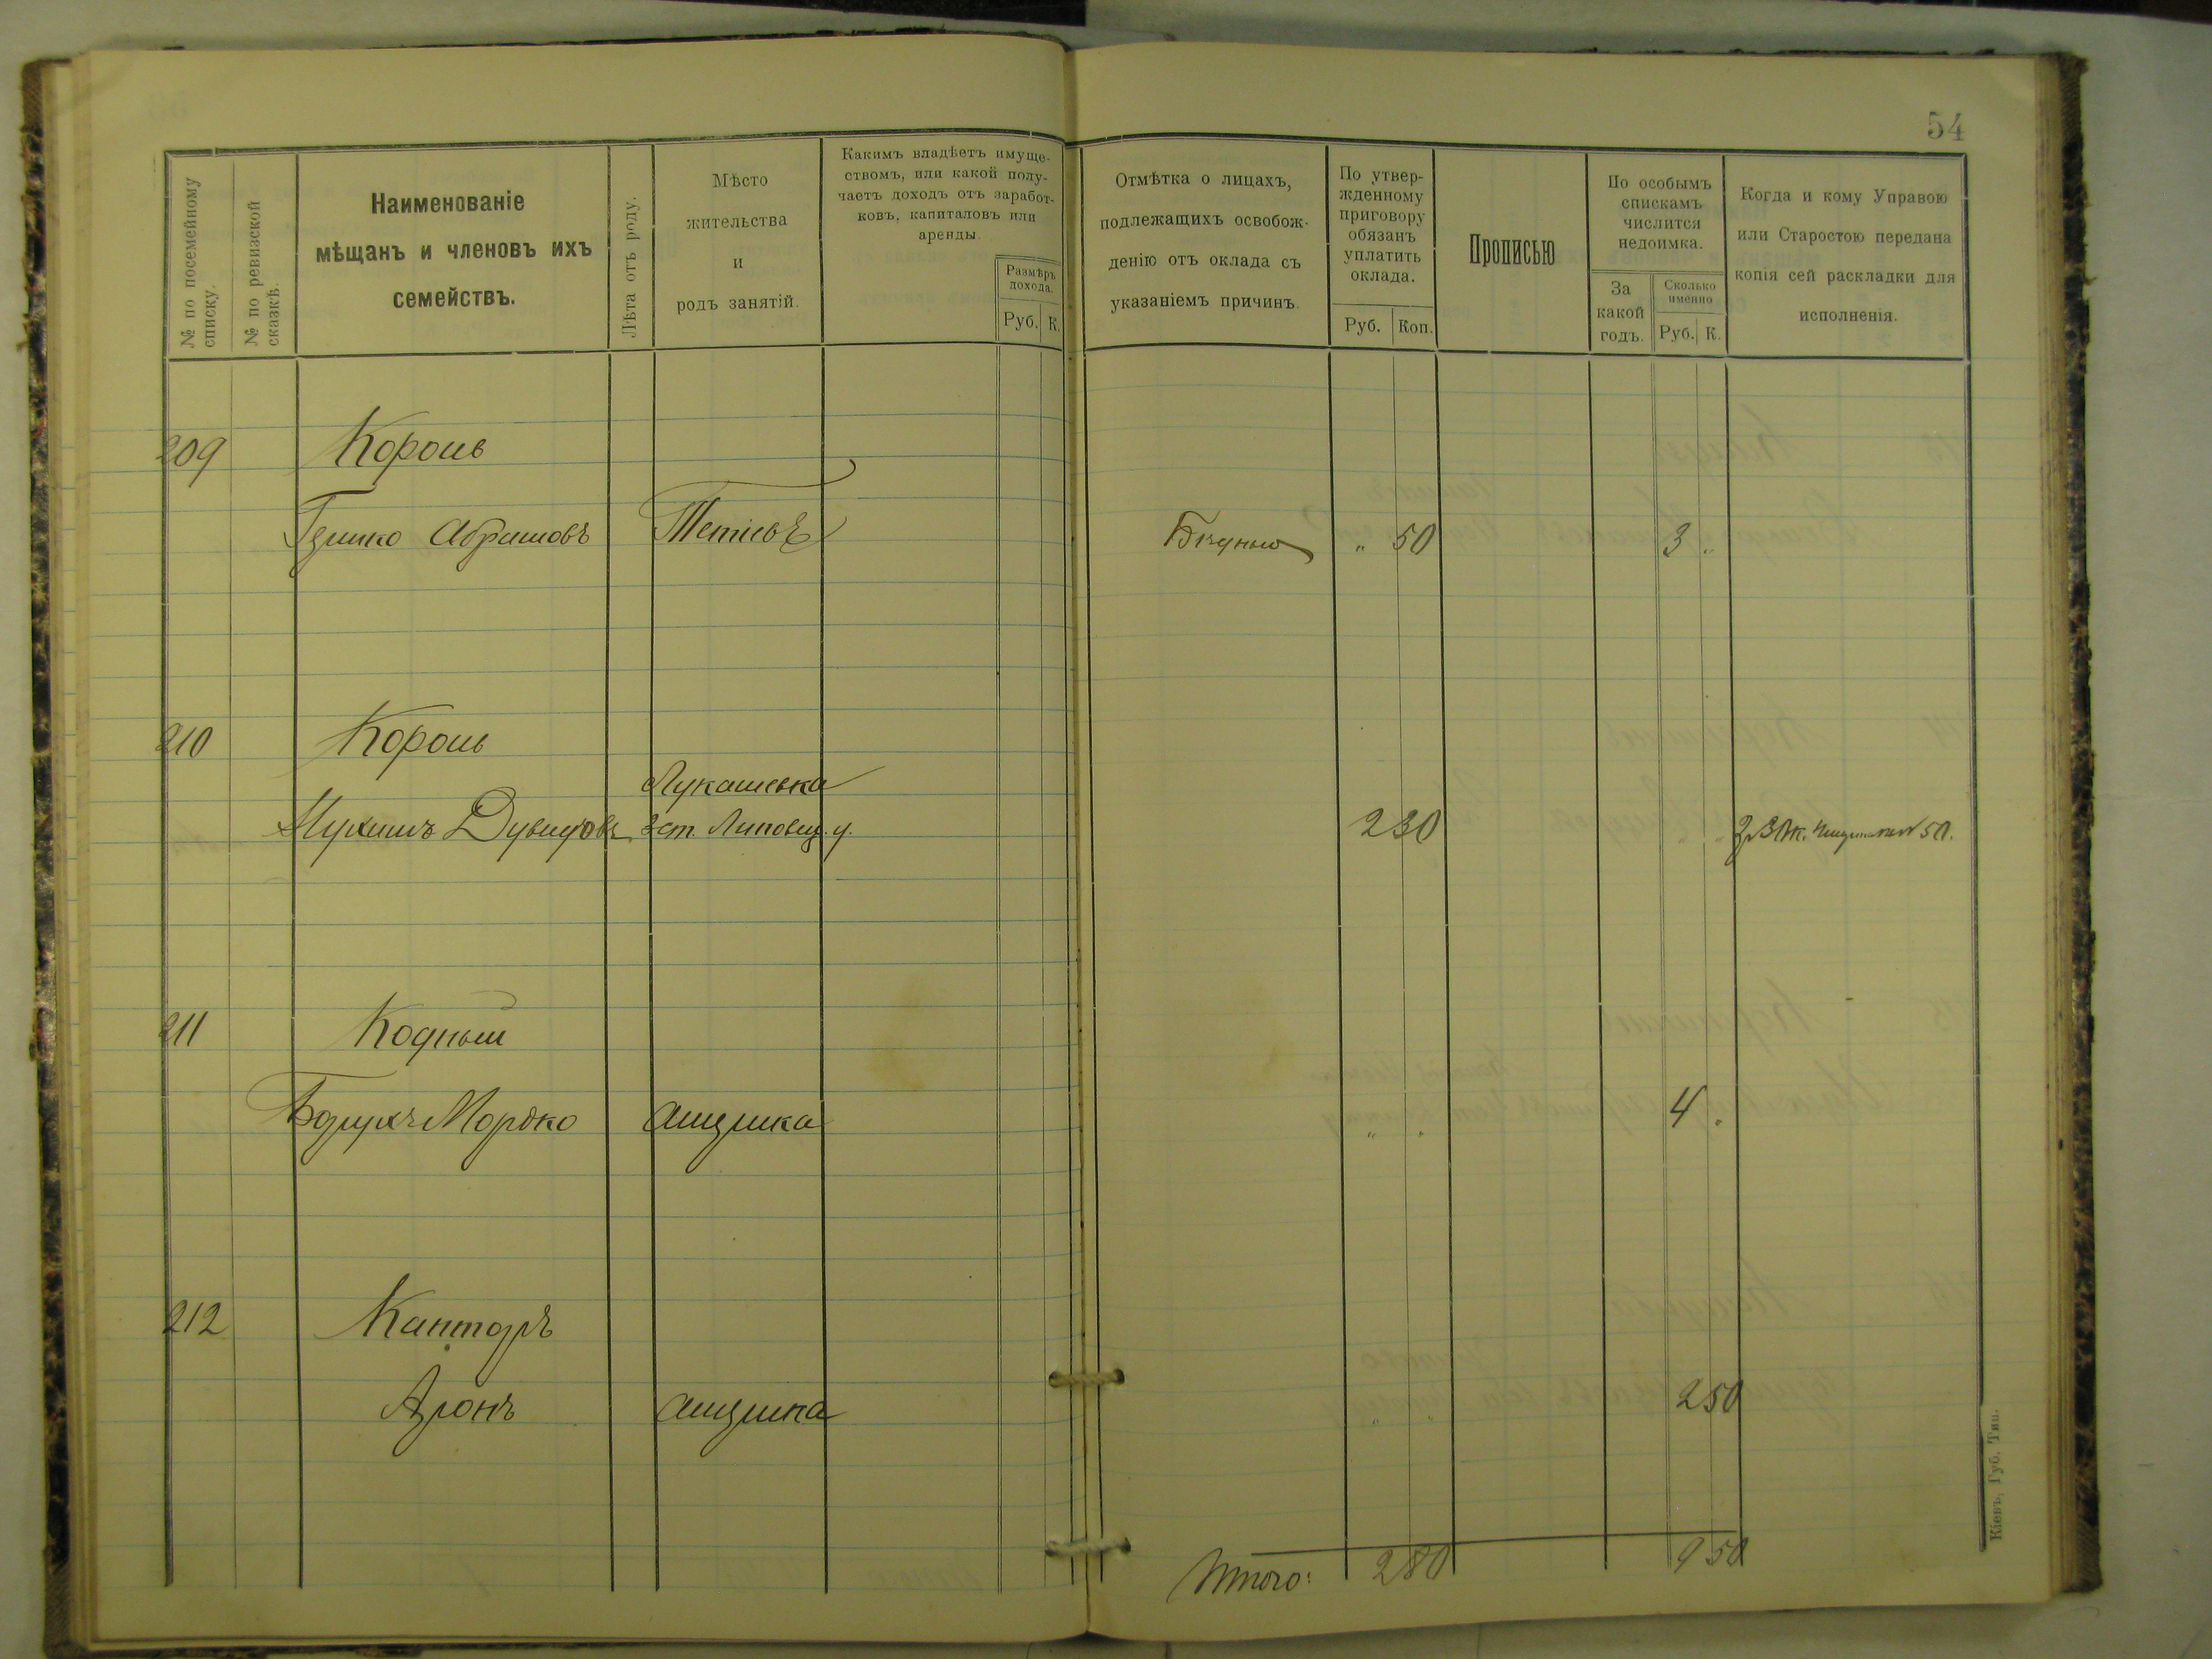 54
№ по посемейному списку.
№ по ревизской сказкѣ.
Наименованіе
мѣщанъ и членовъ ихъ
семействъ.
Лѣта отъ роду.
Мѣсто
жительства
и
родъ занятій.
Какимъ владѣетъ имуще-
ствомъ, или какой полу-
чаетъ доходъ отъ заработ-
ковъ, капиталовъ или
аренды.
Размѣръ
дохода.
Руб. К.
Отмѣтка о лицахъ,
подлежащихъ освобож-
денію отъ оклада съ
указаніемъ причинъ.
По утвер-
жденному
приговору
обязанъ
уплатить
оклада.
Руб. Коп.
Прописью
По особымъ
спискамъ
числится
недоимка.
За
какой
годъ.
Сколько
именно
Руб. К.
Когда и кому Управою
или Старостою передана
копія сей раскладки для
исполненія.
209 Король
Гершко Абрамовъ Тетіевъ „ 50 3 „
210 Король
Лукашевка
Дувидовъ Липовец. у. 2 30 50.
211 Кодный
Борухъ Мордко „ „ 4 „
212 Канторъ
Аронъ 2 50
Итого: 2 80 9 50
Кіевъ, Губ. Тип.